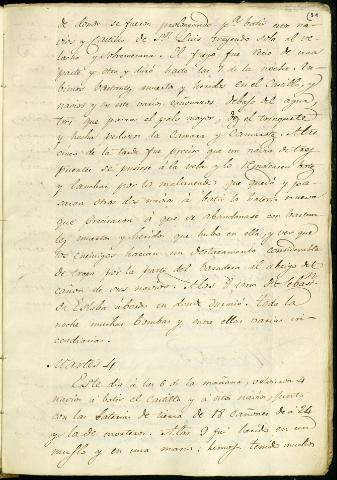 de donde se fueron prolongando pª batir con na-
vios y Castillo de Sn Luis trayendo solo al ve-
lacho y sobremesana. El fuego fue vivo de una
parte y otra y duró hasta las 7 de la noche. Hu-
bimos bastantes muertos y heridos en el Castillo, y
navios y en este varios cañonazos debajo del agua,
tres que pasaron el palo mayor, dos el trinquete
y hecha pedazos la Camara y Camarote. A las
cinco de la tarde fue preciso que un navio de tres
puentes se pusiese á la vela y lo remolcasen botes
y lanchas por lo maltratado que quedó y pa-
saron otros dos navios á batir la bateria nueva
que precisaron á que se abandonase con bastan-
tes muertos y heridos que hubo en ella, y ver que
los enemigos hacian un destacamento considerable
de tropa por la parte del varadero al abrigo del
cañon de sus navios. A las 8 vino Dn Sebastn
de Eslaba ábordo en donde durmió. toda la
noche muchas bombas y entre ellas varias in-
cendiarias.
Martes 4
Este dia á las 6 de la mañana, volvieron 4
navios á batir el Castillo y á otros navios, junto
con las baterias de tierra de 18 cañones de á 24
y la de morteros. A las 9 fui herido en un
muslo y en una mano: hemos tenido muchos